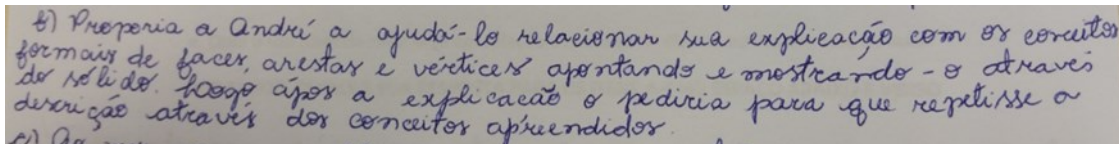 b) Proporia a André a ajudá-lo relacionar sua explicação com os conceitos
formais de faces, arestas e vértices apontando e mostrando-o através
do sólido. Logo após a explicacaão o pediria para que repetisse a
descrição através dos conceitos aprendidos.
c)